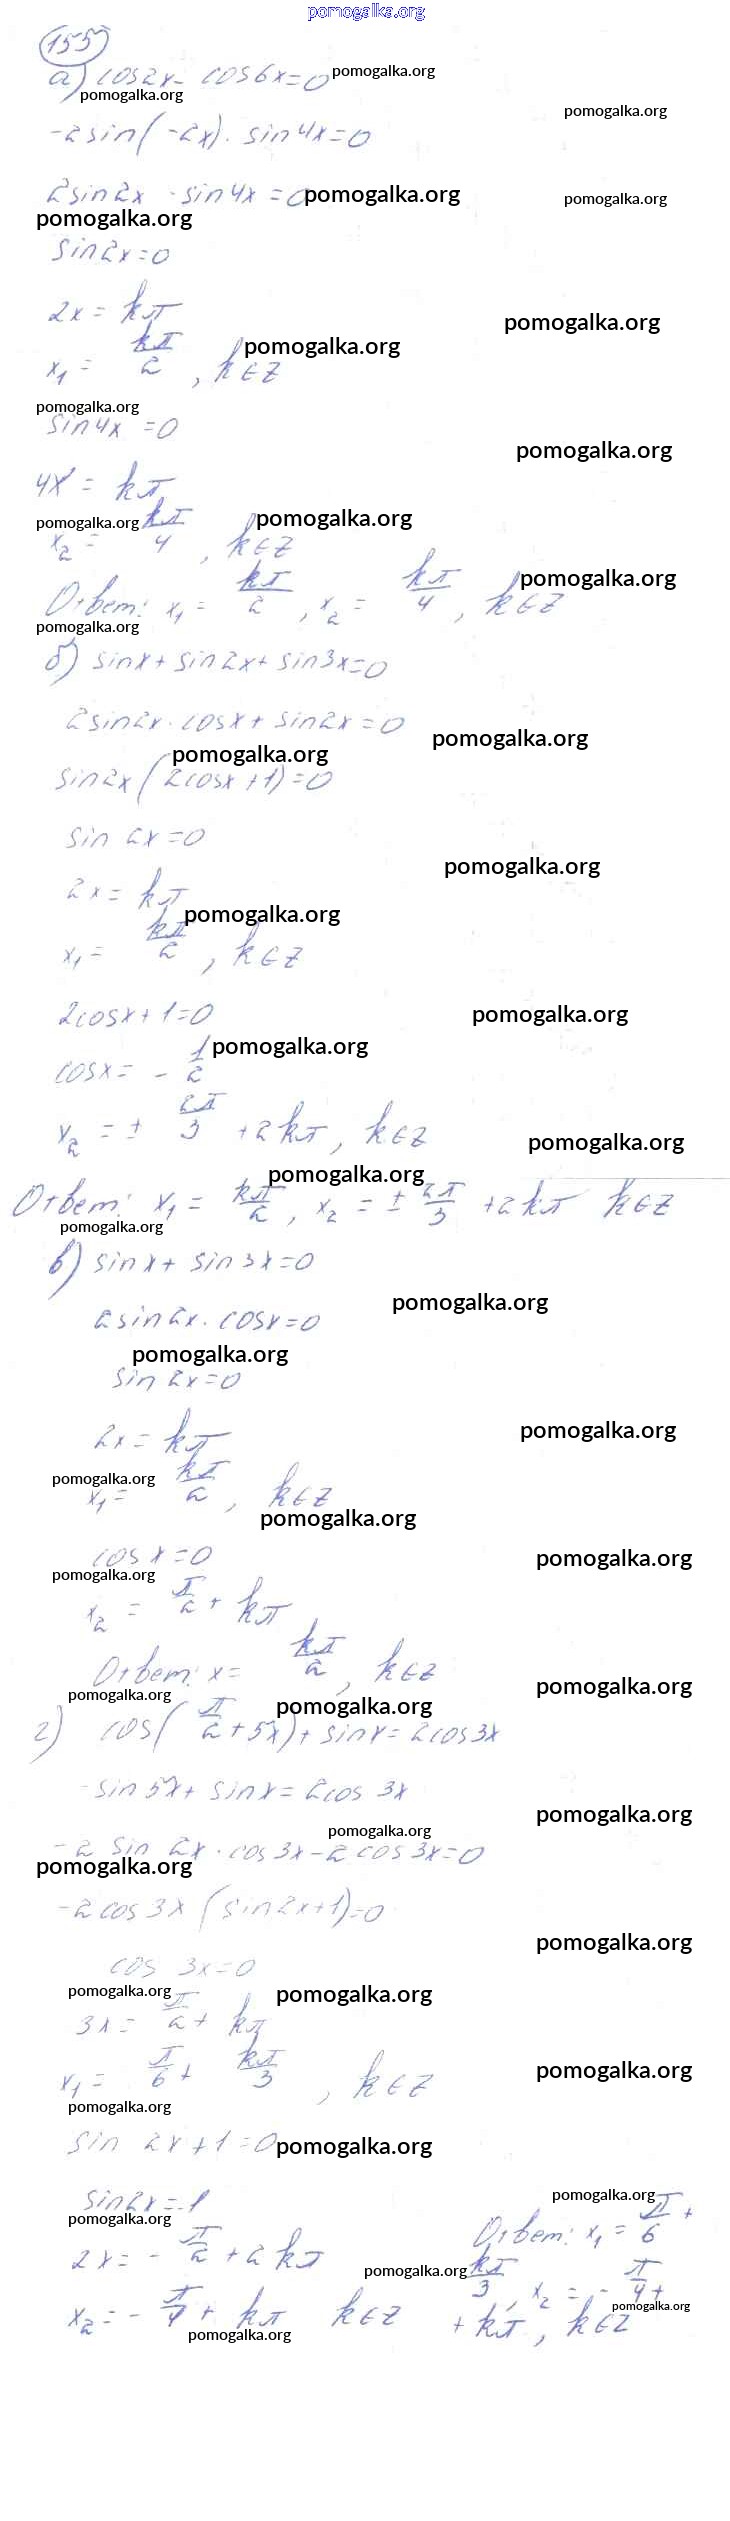 pomogalka.org
155
а) cos2x - cos6x=0 pomogalka.org
pomogalka.org
pomogalka.org
-2sin(-2x)·sin4x=0
2sin2x·sin4x=0 pomogalka.org
pomogalka.org
pomogalka.org
sin2x=0
2x=kπ
pomogalka.org
x₁= kπ/2, k∈Z
pomogalka.org
pomogalka.org
sin4x=0
pomogalka.org
4x=kπ
pomogalka.org
pomogalka.org
x₂= kπ/4, k∈Z
pomogalka.org
Ответ: x₁= kπ/2, x₂= kπ/4, k∈Z
pomogalka.org
б) sinx+sin2x+sin3x=0
2sin2x·cosx+sin2x=0
pomogalka.org
pomogalka.org
sin2x(2cosx+1)=0
sin2x=0
pomogalka.org
2x=kπ
pomogalka.org
x₁= kπ/2, k∈Z
2cosx+1=0
pomogalka.org
cosx= - 1/2
pomogalka.org
x₂=± 2π/3 +2kπ, k∈Z
pomogalka.org
pomogalka.org
Ответ: x₁= kπ/2, x₂=± 2π/3 +2kπ k∈Z
pomogalka.org
в) sinx+sin3x=0
pomogalka.org
2sin2x·cosx=0
pomogalka.org
sin2x=0
2x=kπ
pomogalka.org
pomogalka.org
x₁= kπ/2, k∈Z
pomogalka.org
cosx=0
pomogalka.org
pomogalka.org
x₂= π/2 + kπ
Ответ: x= kπ/2, k∈Z
pomogalka.org
pomogalka.org
pomogalka.org
г) cos(π/2+5x)+sinx=2cos3x
-sin5x+sinx=2cos3x
pomogalka.org
pomogalka.org
-2sin2x·cos3x-2cos3x=0
pomogalka.org
-2cos3x(sin2x+1)=0
pomogalka.org
cos3x=0
pomogalka.org
pomogalka.org
3x= π/2 + kπ
x₁= π/6 + kπ/3, k∈Z
pomogalka.org
pomogalka.org
sin2x+1=0
pomogalka.org
sin2x=-1
pomogalka.org
pomogalka.org
2x=- π/2 +2kπ
x₂=- π/4 + kπ k∈Z
pomogalka.org
Ответ: x₁= π/6 +
pomogalka.org
kπ/3, x₂=- π/4 +
pomogalka.org
+kπ, k∈Z